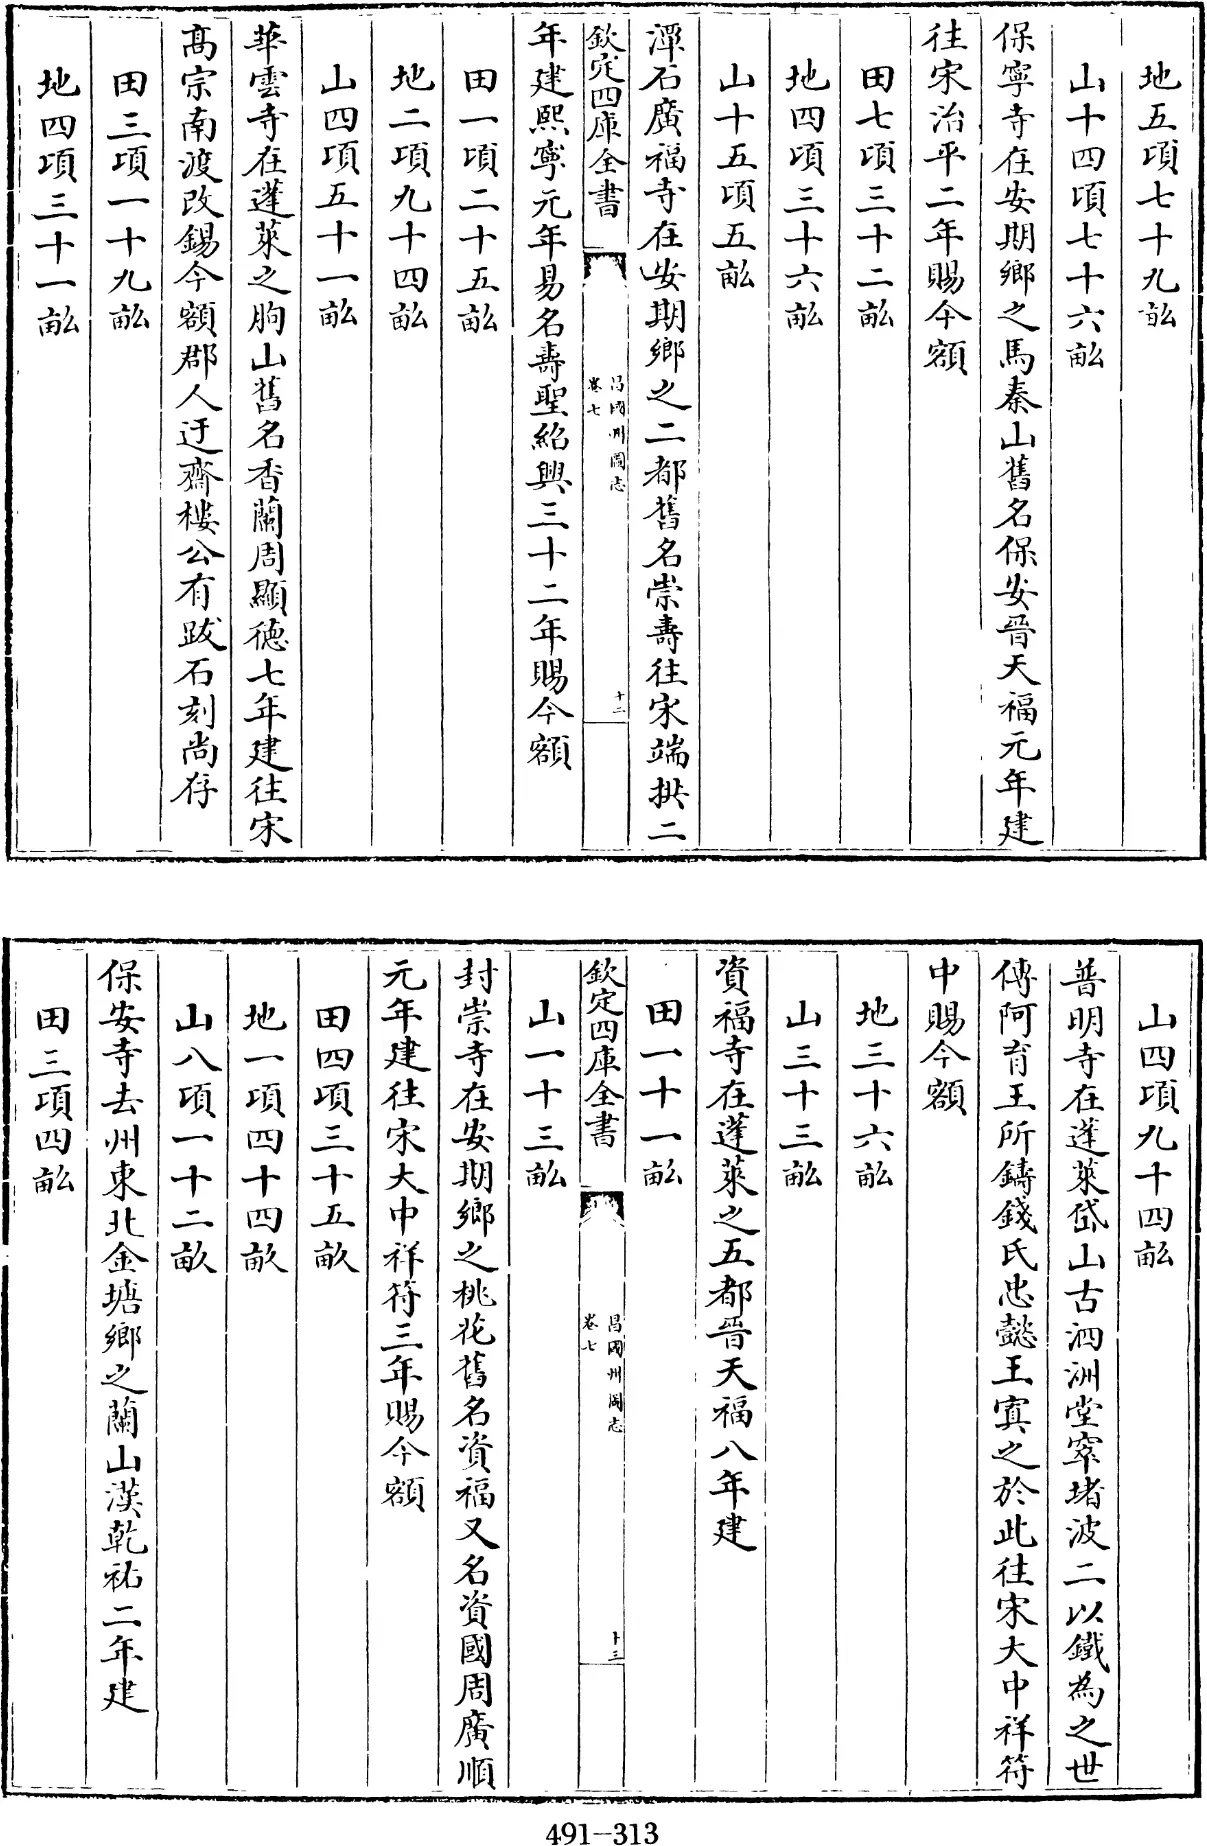 地五頃七十九畝
山十四頃七十六畝
保寧寺在安期鄉之馬秦山舊名保安晉天福元年建
往宋治平二年賜今額
田七頃三十二畝
地四頃三十六畝
山十五頃五畝
潭石廣福寺在安期鄉之二都舊名崇壽往宋端拱二
欽定四庫全書
昌國州圖志
卷七
十二
年建熙寧元年易名壽聖紹興三十二年賜今額
田一頃二十五畝
地二頃九十四畝
山四頃五十一畝
華雲寺在蓬萊之朐山舊名香蘭周顯德七年建往宋
髙宗南渡改錫今額郡人迂齋樓公有跋石刻尚存
田三頃一十九畝
地四頃三十一畝
山四頃九十四畝
普明寺在蓬萊岱山古泗洲堂窣堵波二以鐵為之世
傳阿育王所鑄錢氏忠懿王寘之於此往宋大中祥符
中賜今額
地三十六畝
山三十三畝
資福寺在蓬萊之五都晉天福八年建
田一十一畝
欽定四庫全書
昌國州圖志
卷七
十三
山一十三畝
封崇寺在安期鄉之桃花舊名資福又名資國周廣順
元年建往宋大中祥符三年賜今額
田四頃三十五畝
地一頃四十四畝
山八頃一十二畝
保安寺去州東北金塘鄉之蘭山漢乾祐二年建
田三頃四畝
491-313